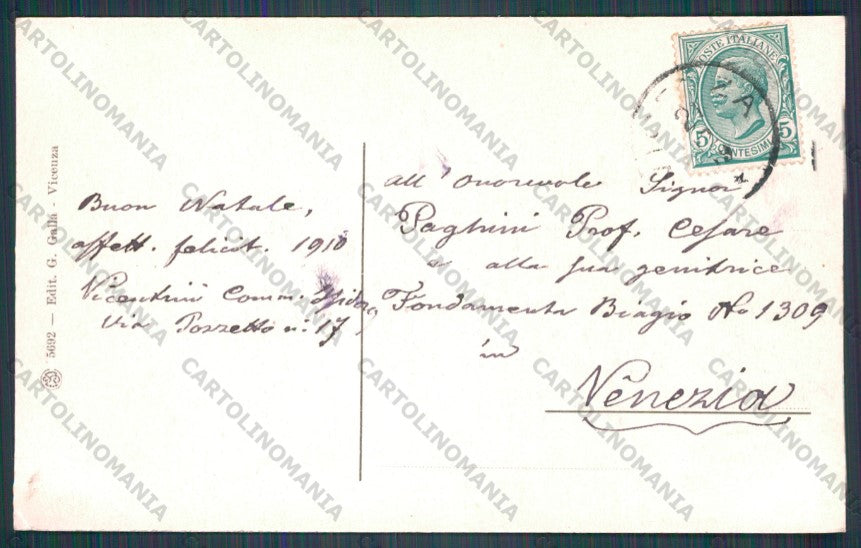 5692 — Edit. G. Gallà - Vicenza
Buon Natale,
affett. felicit. 1910
Vicentini Comm. Isidoro
Via Pozzetto n: 17
POSTE ITALIANE
5 CENTESIMI 5
all'Onorevole Signor
Paghini Prof. Cesare
e alla sua genitrice
Fondamenta Biagio No 1309
in
Venezia
CARTOLINOMANIA